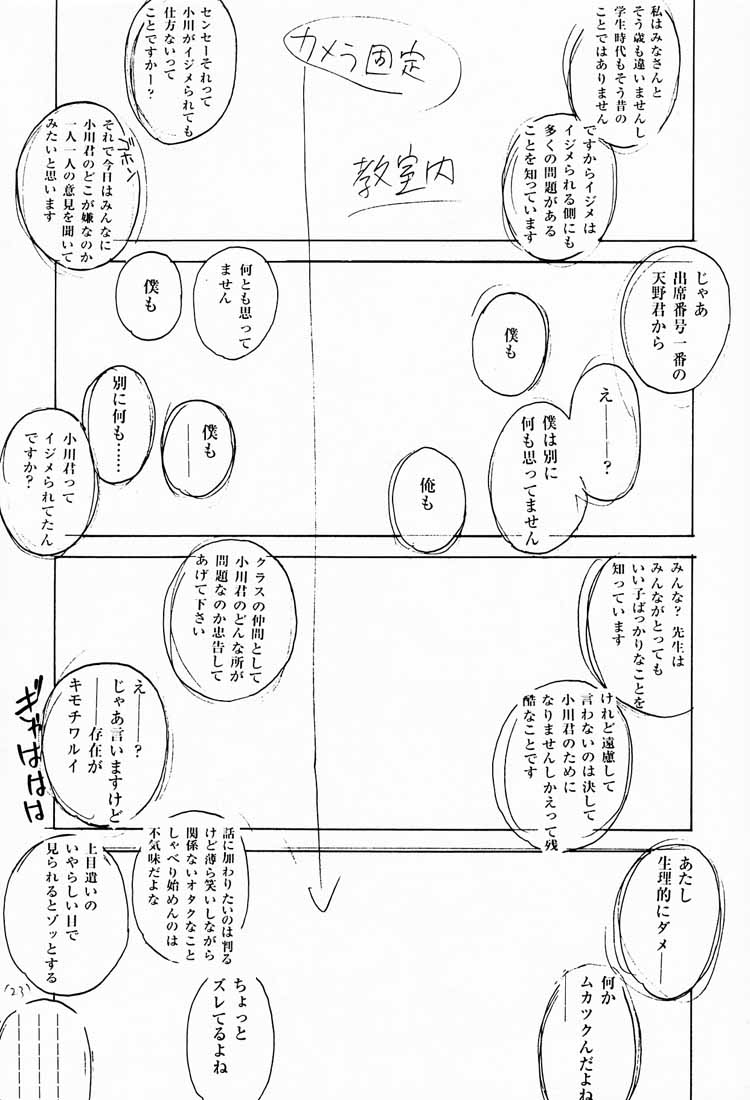 私はみなさんと
そう歳も違いませんし
学生時代もそう昔の
ことではありません
ですからイジメは
イジメられる側にも
多くの問題がある
ことを知っています
カメラ固定
教室内
センセーそれって
小川がイジメられても
仕方ないって
ことですかー？
それで今日はみんなに
小川君のどこが嫌なのか
一人一人の意見を聞いて
みたいと思います
じゃあ
出席番号一番の
天野君から
え――？
僕は別に
何も思ってません
僕も
俺も
何とも思って
ません
僕も
僕も
――
別に何も……
小川君って
イジメられてたん
ですか？
みんな？先生は
みんながとっても
いい子ばっかりなことを
知っています
けれど遠慮して
言わないのは決して
小川君のために
なりませんしかえって残
酷なことです
クラスの仲間として
小川君のどんな所が
問題なのか忠告して
あげて下さい
え――？
じゃあ言いますけど
――存在が
キモチワルイ
ギャははは
あたし
生理的にダメ――
何か
ムカツクんだよね
――
話に加わりたいのは判る
けど薄ら笑いしながら
関係ないオタクなこと
しゃべり始めんのは
不気味だよな
ちょっと
ズレてるよね
上目遣いの
いやらしい目で
見られるとゾッとする
(23)